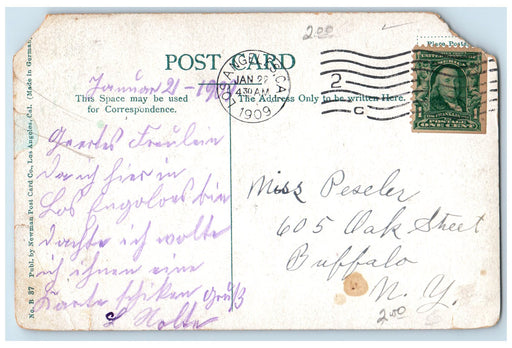 2.00
POST CARD
Place Post
LOS ANGELES, CA
JAN 22
430 AM
1909
2
C
POSTAGE
ONE CENT
Januar 21 - 1909
This Space may be used
for Correspondence.
The Address Only to be written Here.
Geertes Fräulein
da ich hier in
Los Engoloes bin
dachte ich wolte
ich ihnen eine
Karte schiken Gruß
L Nolte
Miss Peseler
605 Oak Street
Buffalo
N. Y.
2.00
No. B 37 Publ. by Newman Post Card Co., Los Angeles, Cal. (Made in German